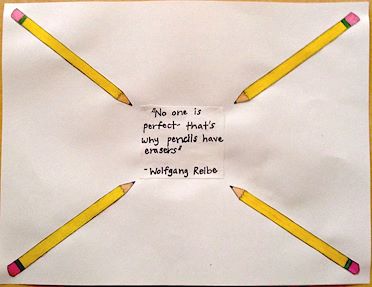 "No one is
perfect that's
why pencils have
erasers"
-Wolfgang Reibe